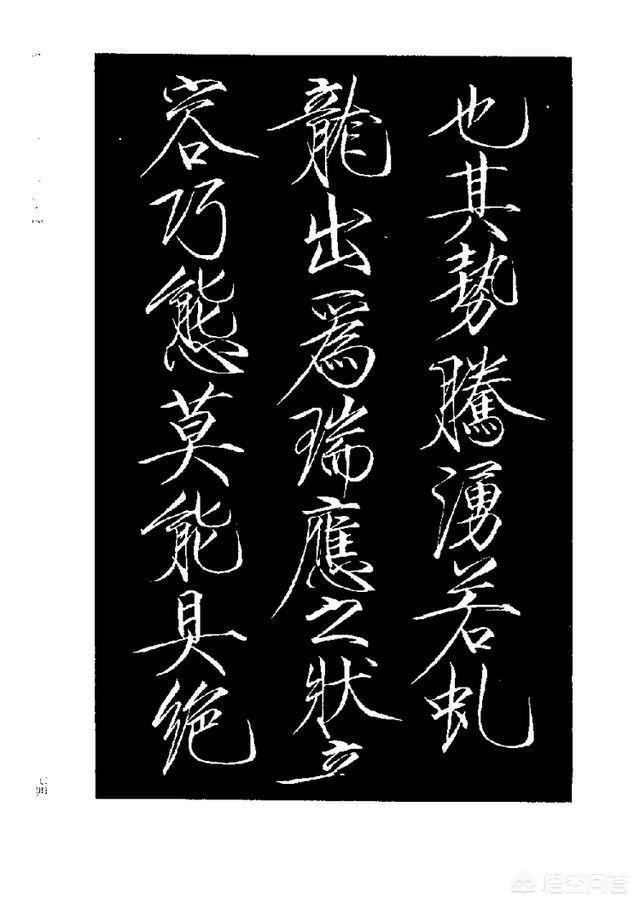 也其勢騰湧若虬
龍出爲瑞應之狀
容巧態莫能具絕
悟空问答